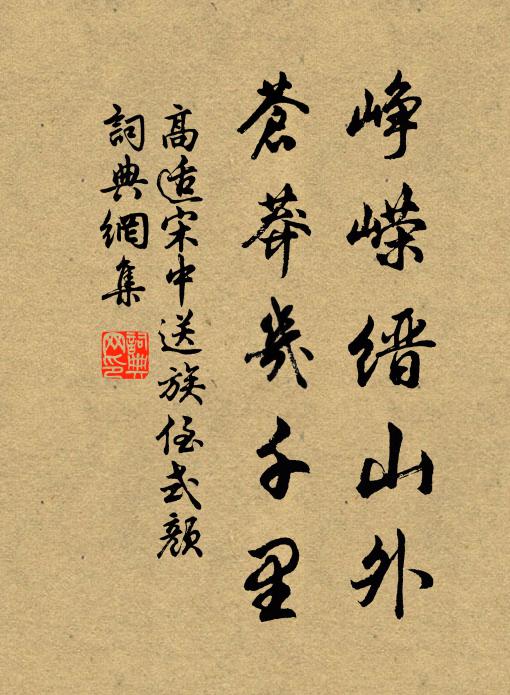 峥嵘缙山外
蒼莽幾千里
高适宋中送族侄式顏
詞典網集
詞典网印